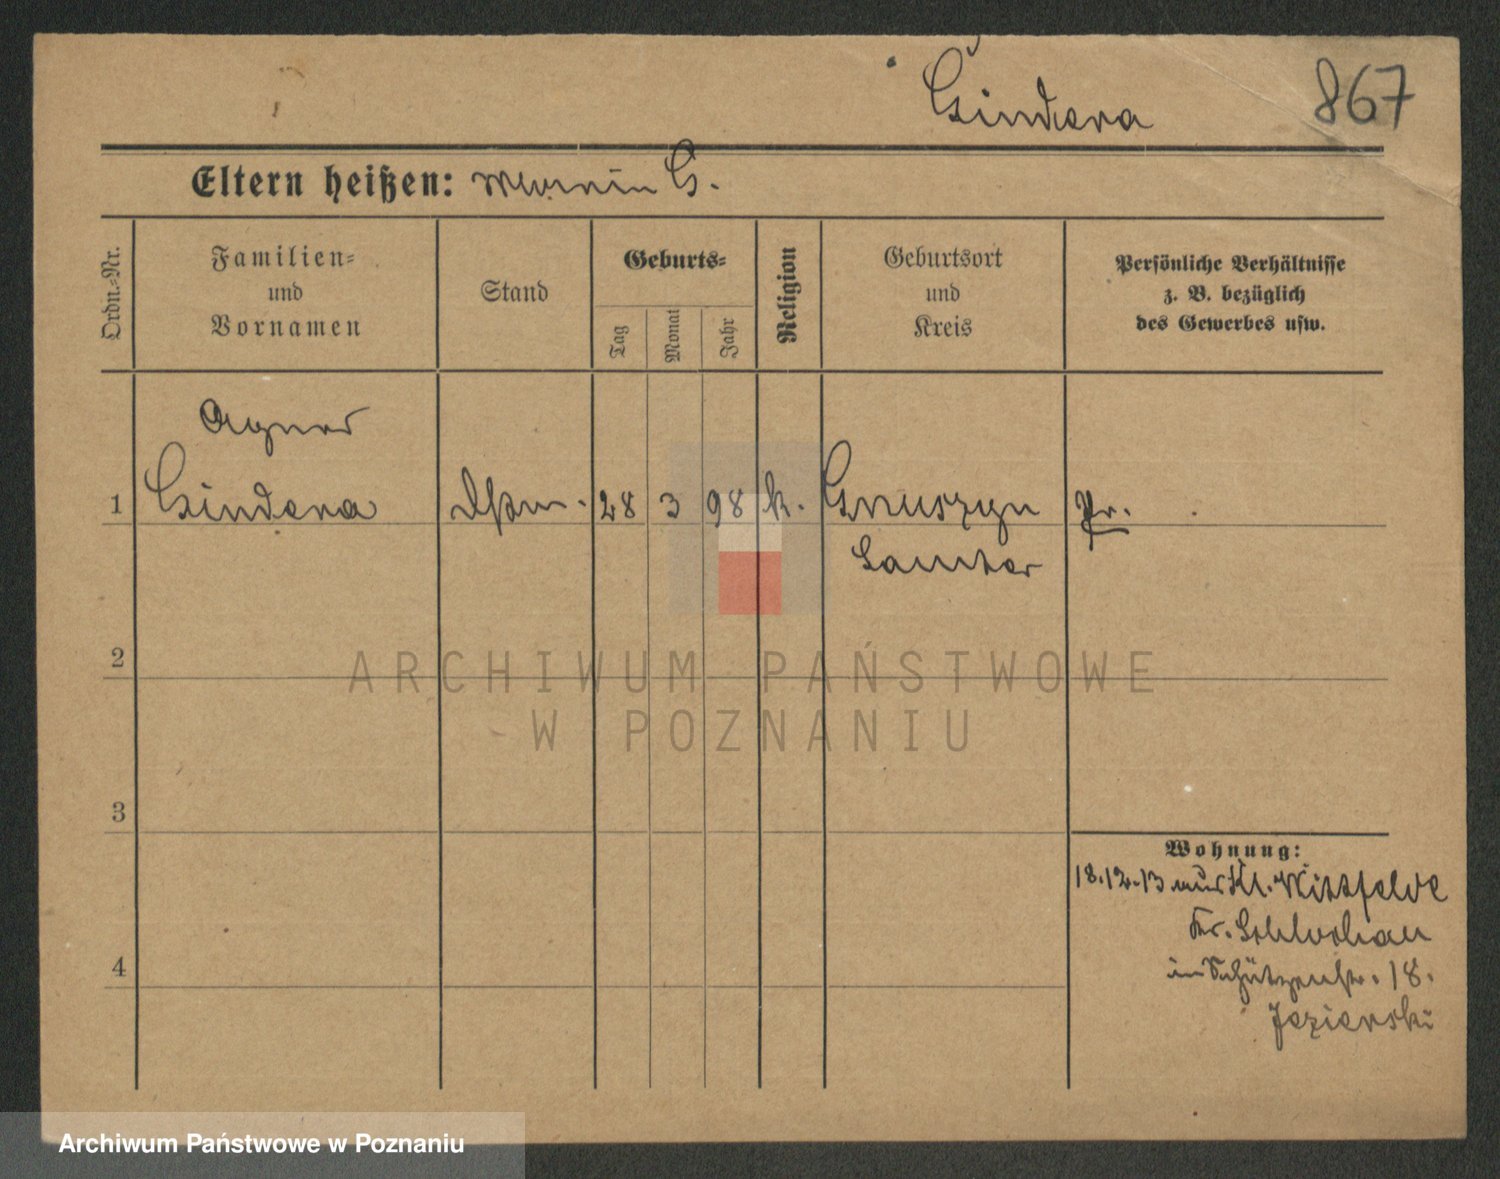 Cindera 867
Eltern heißen: Marcin C.
Ordn.-Nr.
Familien-
und
Vornamen
Stand
Geburts-
Tag
Monat
Jahr
Religion
Geburtsort
und
Kreis
Persönliche Verhältnisse
z. B. bezüglich
des Gewerbes usw.
Agnes
1 Cindera 28 3 98 k. Gnuszyn Pr.
Samter
2
3
4
Wohnung:
18.12.13 aus Kl. Wittfelde
Kr. Schlochau
in Schützenstr. 18.
Jezierski
ARCHIWUM PAŃSTWOWE
W POZNANIU
Archiwum Państwowe w Poznaniu